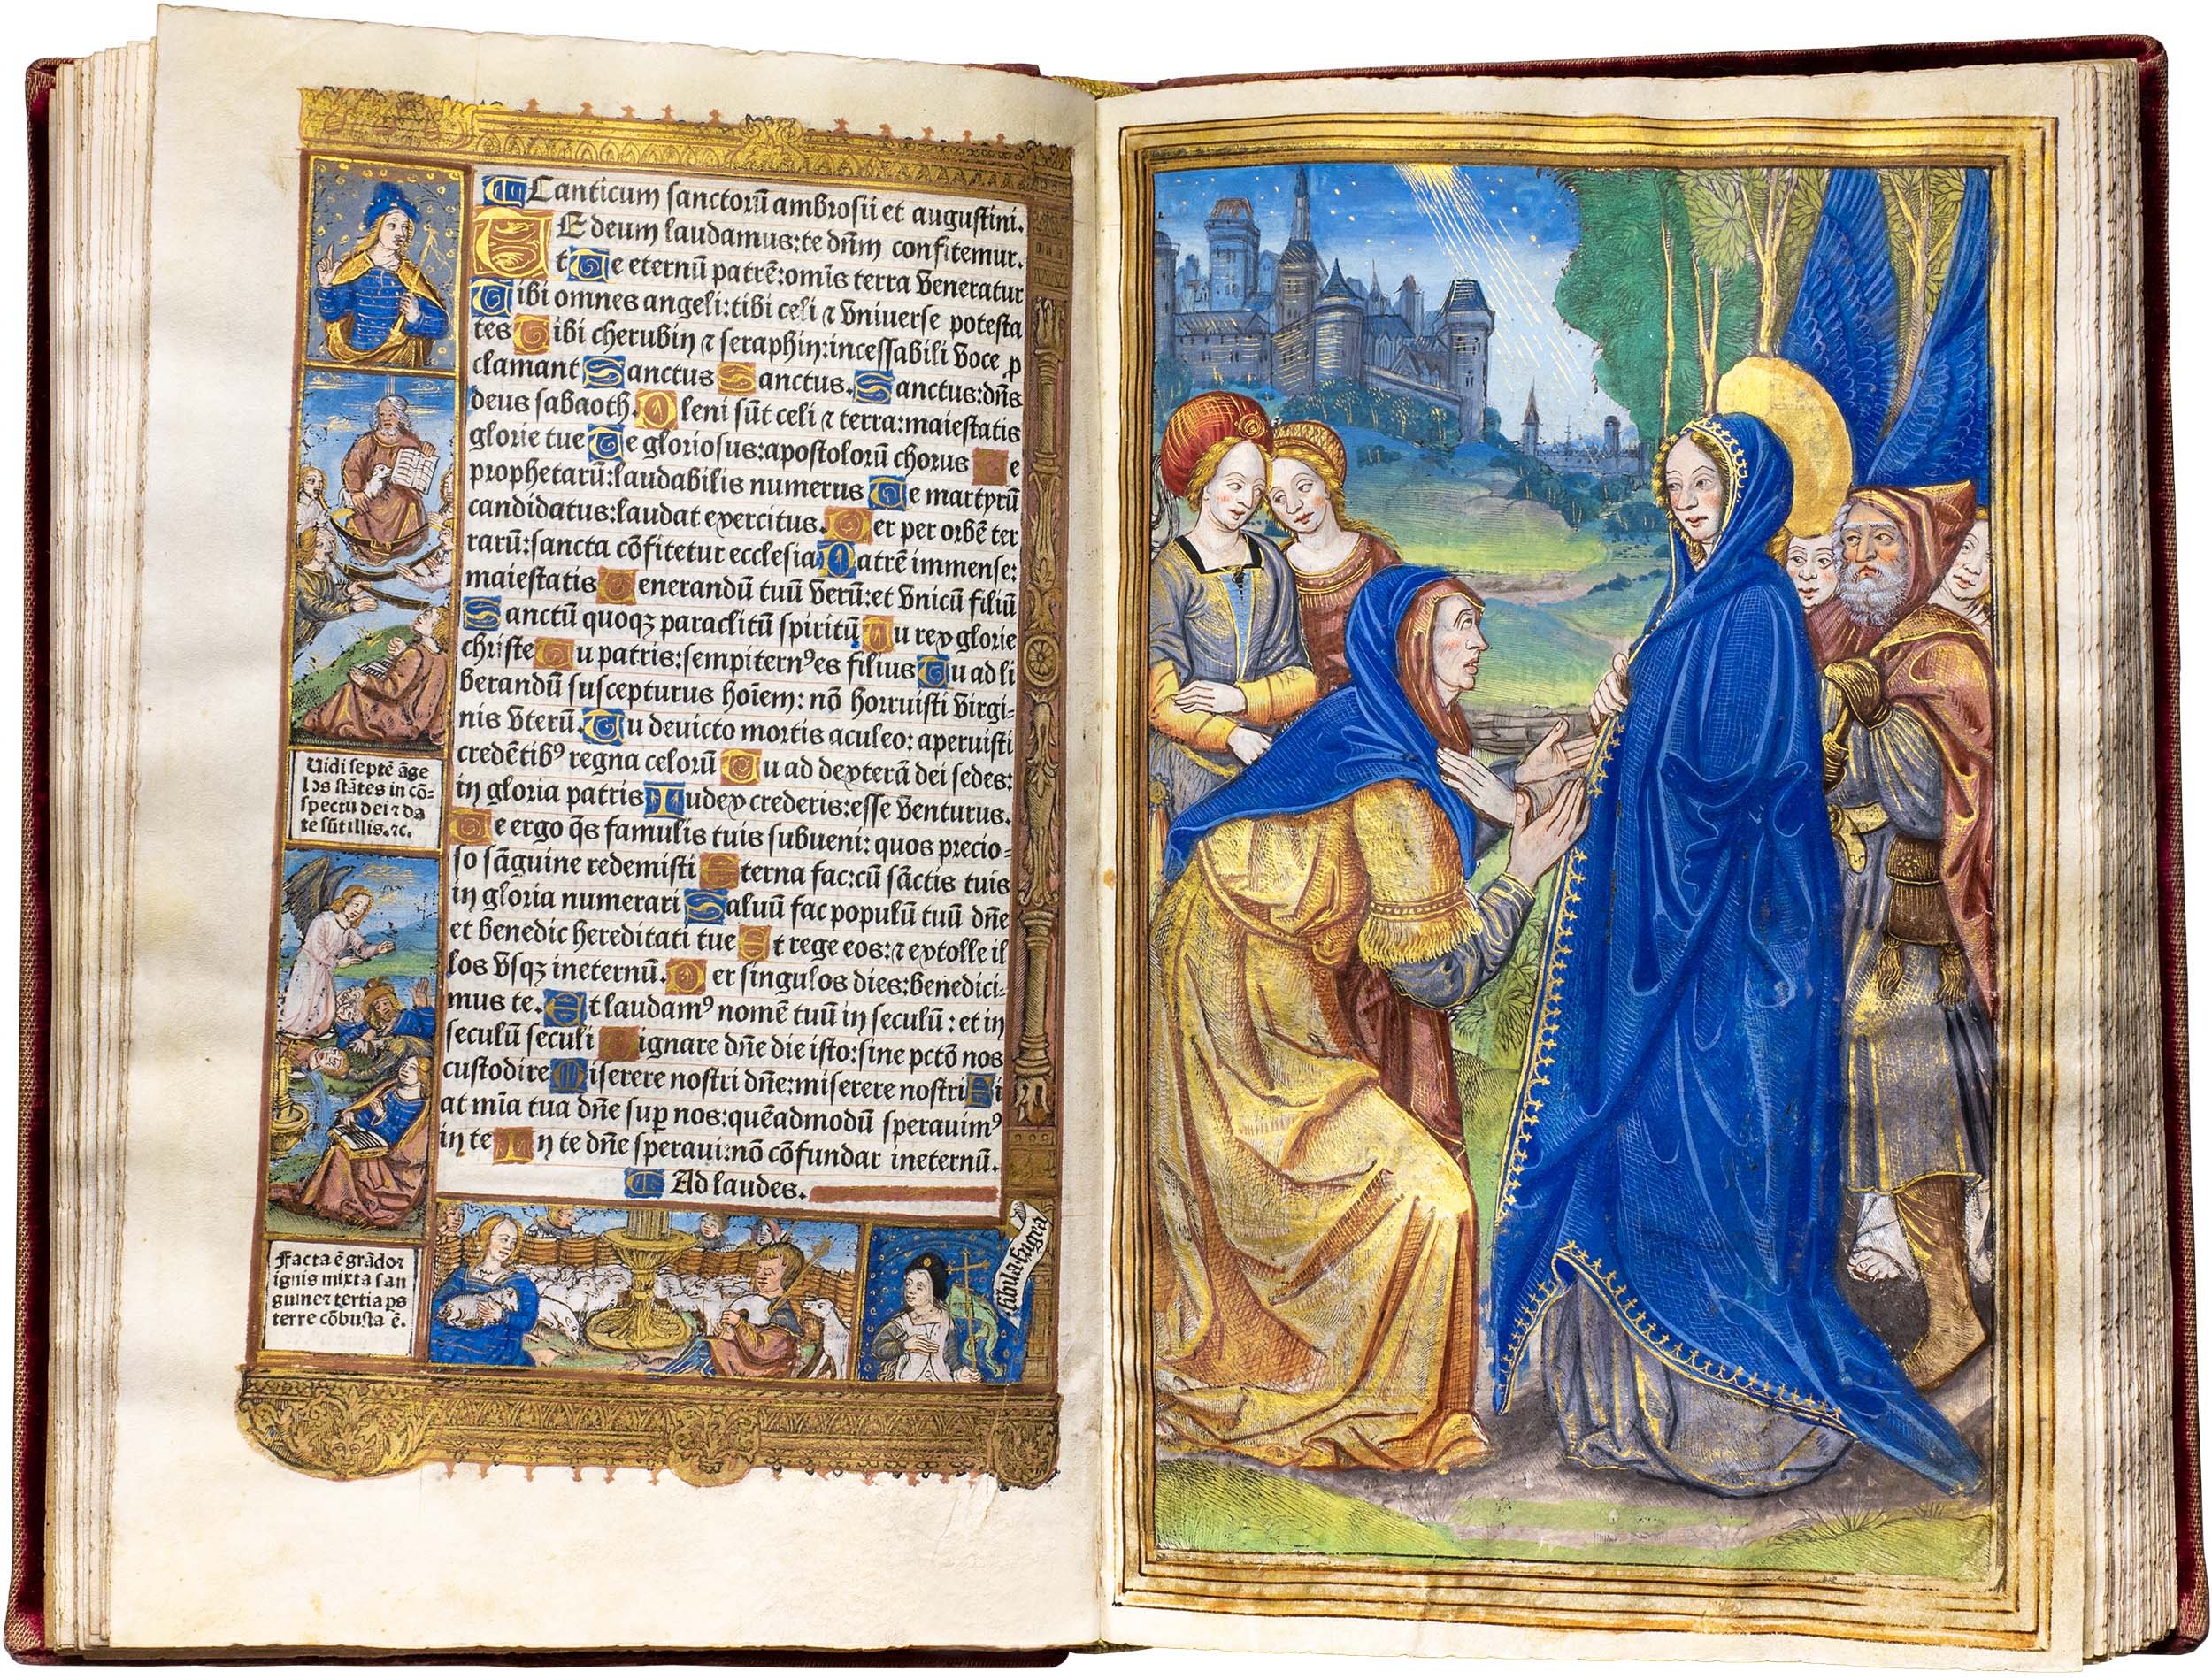 Canticum sanctorū ambrosii et augustini.
TE deum laudamus: te dn̄m confitemur.
te Te eternū patrē: om̄is terra veneratur
Tibi omnes angeli: tibi celi ⁊ vniuerse potesta
tes Tibi cherubin ⁊ seraphin: incessabili voce ꝓ
clamant Sanctus Sanctus. Sanctus: dn̄s
deus sabaoth. Pleni sūt celi ⁊ terra: maiestatis
glorie tue Te gloriosus: apostolorū chorus Te
prophetarū: laudabilis numerus Te martyrū
candidatus: laudat exercitus. Te per orbē ter
rarū: sancta cōfitetur ecclesia Patrē immense:
maiestatis Venerandū tuū verū: et vnicū filiū
Sanctū quoqꝫ paraclitū spiritū Tu rex glorie
christe Tu patris: sempiternꝰ es filius Tu ad li
berandū suscepturus hoīem: nō horruisti virgi-
nis vterū. Tu deuicto mortis aculeo: aperuisti
credētibꝰ regna celorū Tu ad dexterā dei sedes:
in gloria patris Iudex crederis: esse venturus.
Te ergo q̄s famulis tuis subueni: quos precio-
so sāguine redemisti Eterna fac: cū sāctis tuis
in gloria numerari Saluū fac populū tuū dn̄e
et benedic hereditati tue Et rege eos: ⁊ extolle il
los vsqꝫ in eternū. Per singulos dies: benedici-
mus te. Et laudamꝰ nomē tuū in seculū: et in
seculū seculi Dignare dn̄e die isto: sine pctō nos
custodire Miserere nostri dn̄e: miserere nostri Fi
at mīa tua dn̄e suꝑ nos: quēadmodū sperauimꝰ
in te In te dn̄e speraui: nō cōfundar in eternū.
Ad laudes.
Vidi septē āge
los stātes in cō-
spectu dei ⁊ da
te sūt illis. ⁊c.
Facta ē grādo ⁊
ignis mixta san
guine ⁊ tertia ps
terre cōbusta ē.
sibila frigea